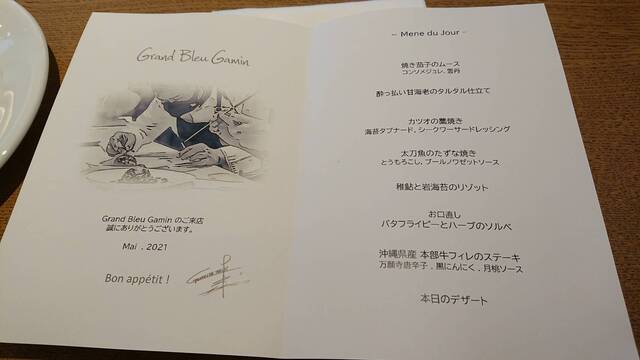 Grand Bleu Gamin
Grand Bleu Gamin のご来店
誠にありがとうございます。
Mai . 2021
Bon appétit !
- Mene du Jour -
焼き茄子のムース
コンソメジュレ、雲丹
酔っ払い甘海老のタルタル仕立て
カツオの藁焼き
海苔タプナード, シークワーサードレッシング
太刀魚のたずな焼き
とうもろこし, ブールノワゼットソース
稚鮎と岩海苔のリゾット
お口直し
バタフライピーとハーブのソルベ
沖縄県産 本部牛フィレのステーキ
万願寺唐辛子 , 黒にんにく , 月桃ソース
本日のデザート